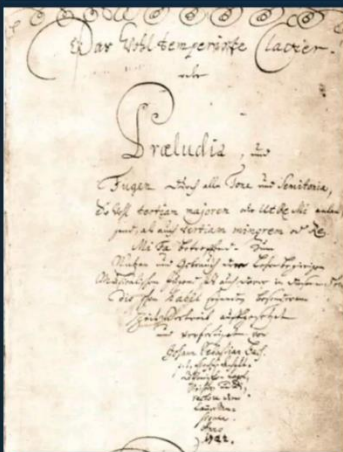 Das Wohltemperirte Clavier.
oder
Præludia, und
Fugen durch alle Tone und Semitonia,
So wohl tertiam majorem oder Ut Re Mi anlan-
gend, als auch tertiam minorem oder Re
Mi Fa betreffend. Zum
Nutzen und Gebrauch der Lehrbegierigen
Musicalischen Jugend als auch derer in diesem stu-
dio schon habil seyenden besonderem
Zeitvertreib auffgesetzet
und verfertiget von
Johann Sebastian Bach.
Anno
1722.